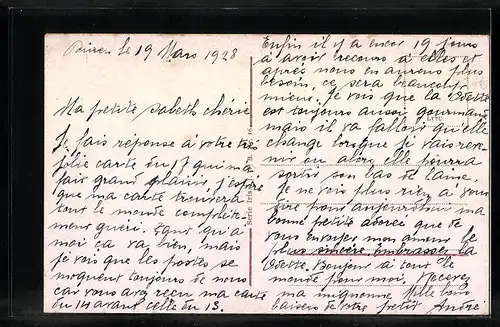 le 19 Mars 1928
Ma petite sabeth chérie
Je fais réponse à votre très
jolie carte du 17 qui m'a
fait grand plaisir, j'espère
que ma carte trouvera
tout le monde complète-
ment guéri. Tant qu'à
moi ca va bien, mais
je vois que les postes se
moquent toujours de nous
car vous avez reçu ma carte
du 14 avant celle du 13.
Enfin il y a encor 19 jours
à avoir recours à elles et
après nous en aurons plus
besoin, ce sera beaucoup
mieux. Je vois que la Odette
est toujours aussi gourmande
mais il va falloir qu'elle
change lorsque je vais reve-
nir ou alors elle pourra
sortir son bas de laine.
Je ne vois plus rien à vous
dire pour aujourd'hui ma
bonne petite adorée que de
vous envoyer mon amour le
plus sincère, embrasser la
Odette. Bonjour à tout le
monde pour moi. Recevez
ma mignonne Mille bons
baisers de votre petit André
LTTC
Série